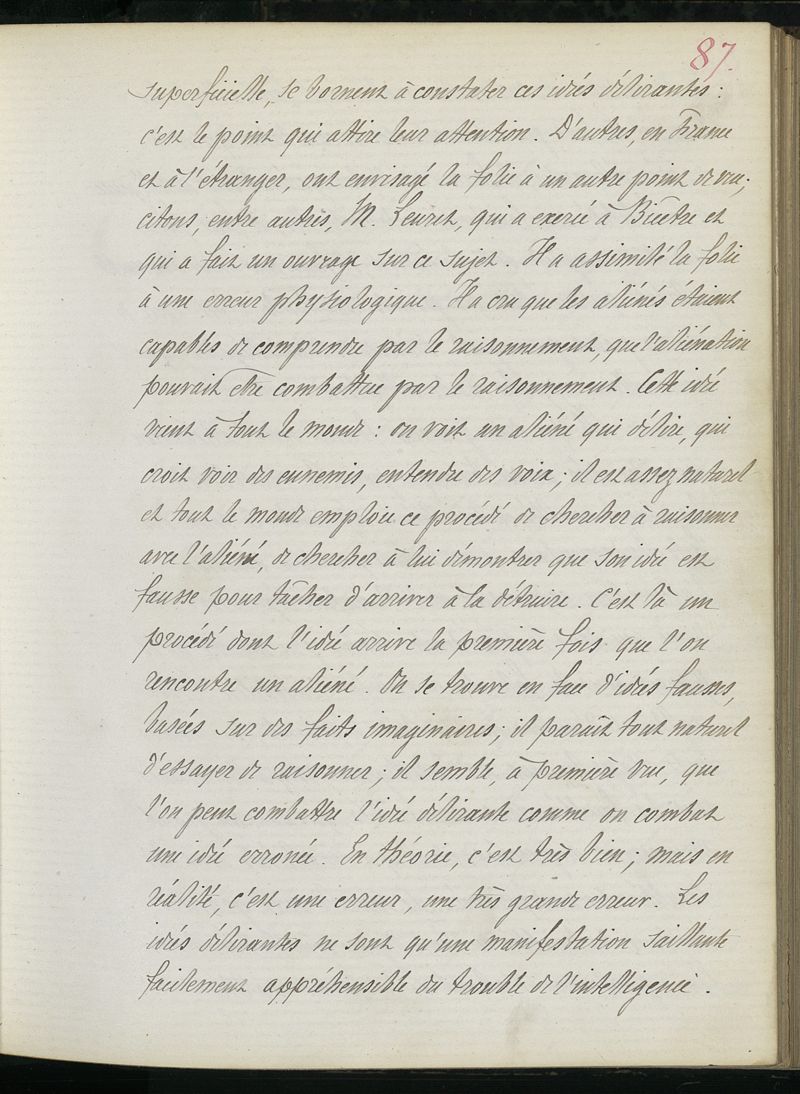 87.
superficielle, se bornent à constater ces idées délirantes :
c'est le point qui attire leur attention. D'autres, en France
et à l'étranger, ont envisagé la folie à un autre point de vue;
citons, entre autres, M. Leuret, qui a exercé à Bicêtre et
qui a fait un ouvrage sur ce sujet. Il a assimilé la folie
à une erreur physiologique. Il a cru que les aliénés étaient
capables de comprendre par le raisonnement, que l'aliénation
pouvait être combattue par le raisonnement. Cette idée
vient à tout le monde : on voit un aliéné qui délire, qui
croit voir des ennemis, entendre des voix; il est assez naturel
et tout le monde emploie ce procédé de chercher à raisonner
avec l'aliéné, de chercher à lui démontrer que son idée est
fausse pour tâcher d'arriver à la détruire. C'est là un
procédé dont l'idée arrive la première fois que l'on
rencontre un aliéné. On se trouve en face d'idées fausses,
basées sur des faits imaginaires; il paraît tout naturel
d'essayer de raisonner; il semble, à première vue, que
l'on peut combattre l'idée délirante comme on combat
une idée erronée. En théorie, c'est très bien; mais en
réalité, c'est une erreur, une très grande erreur. Les
idées délirantes ne sont qu'une manifestation saillante
facilement appréhensible du trouble de l'intelligence.